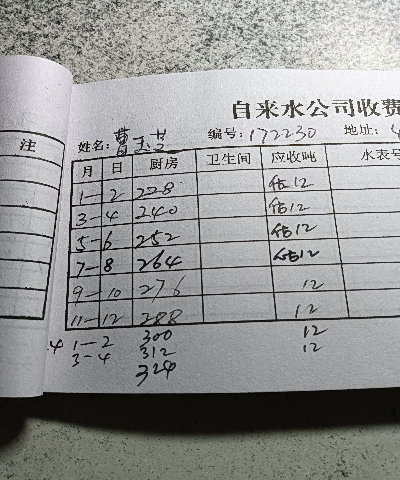 自来水公司收费
姓名: 曹玉芝 编号: 172230 地址:
注
月 日 厨房 卫生间 应收吨 水表号
1-2 228 估12
3-4 240 估12
5-6 252 估12
7-8 264 估12
9-10 276 12
11-12 288 12
4 1-2 300 12
3-4 312 12
324